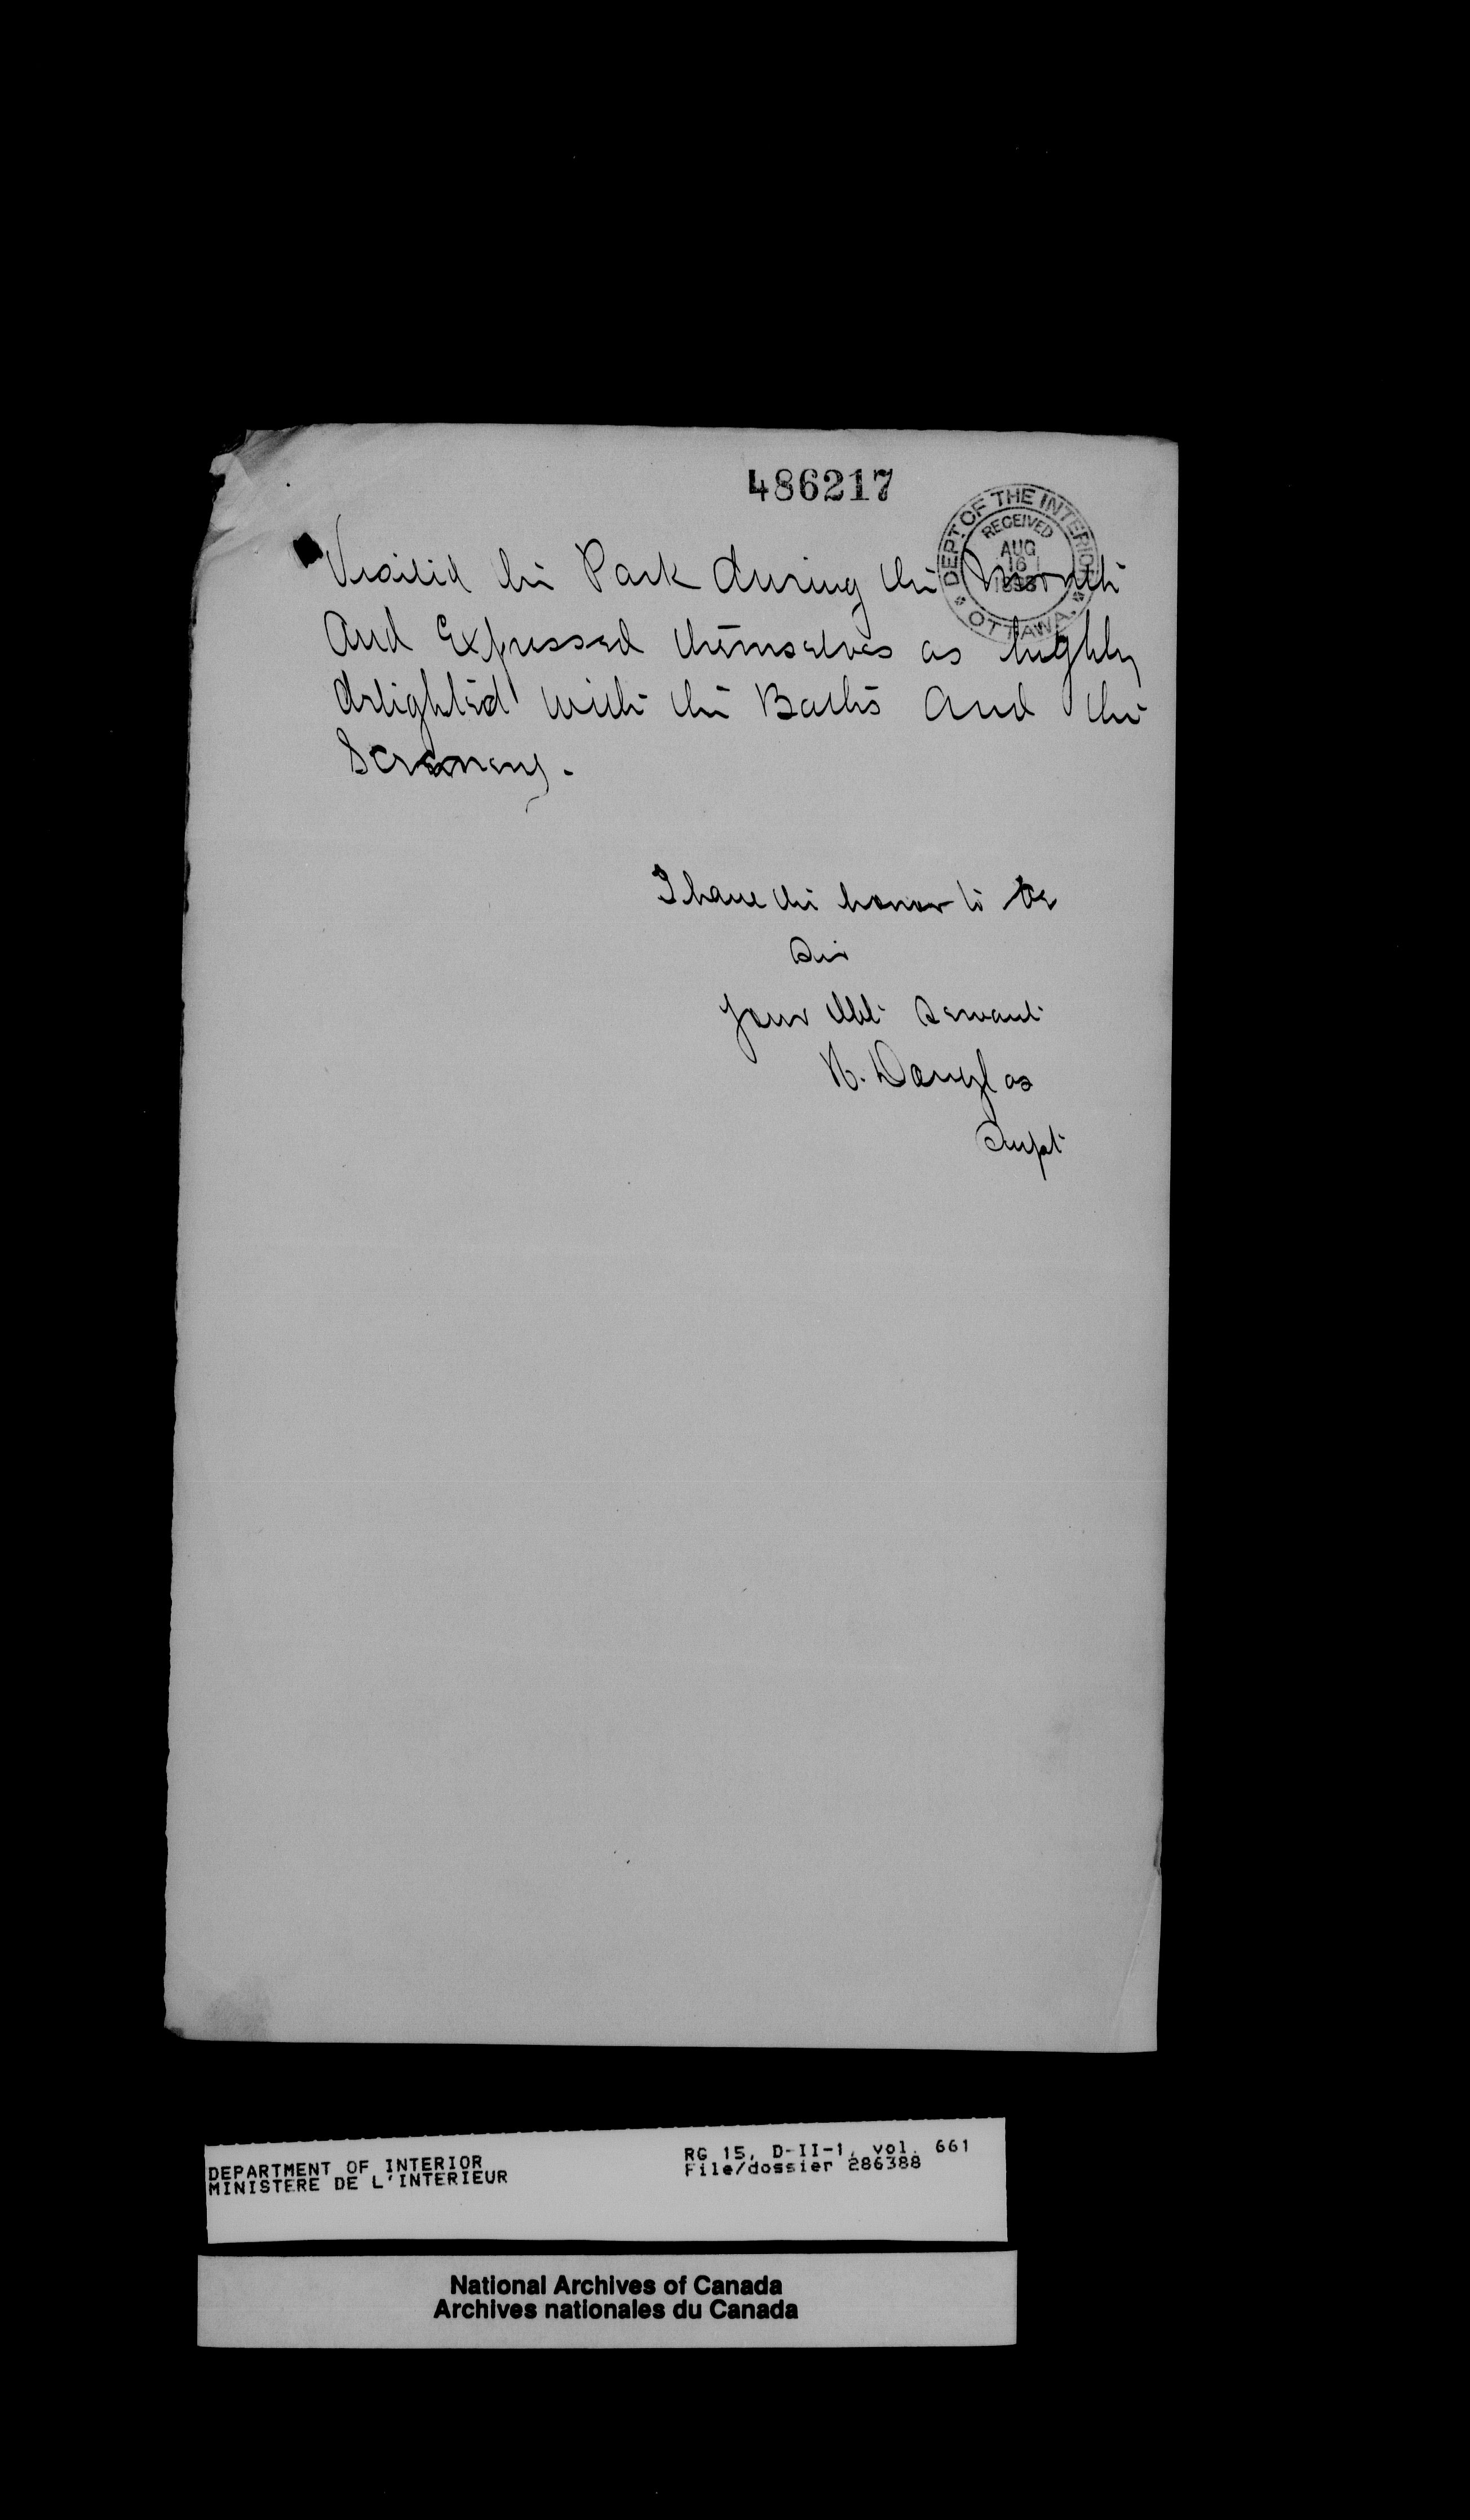 486217
DEPT. OF THE INTERIOR
RECEIVED
AUG
16
1898
OTTAWA.
Visited the Park during the Month
And Expressed themselves as highly
delighted with the Baths And the
Scenery.
I have the honor to be
Sir
Your Obt Servant
N. Douglas
Supt
DEPARTMENT OF INTERIOR
MINISTERE DE L'INTERIEUR
RG 15, D-II-1, vol. 661
File/dossier 286388
National Archives of Canada
Archives nationales du Canada